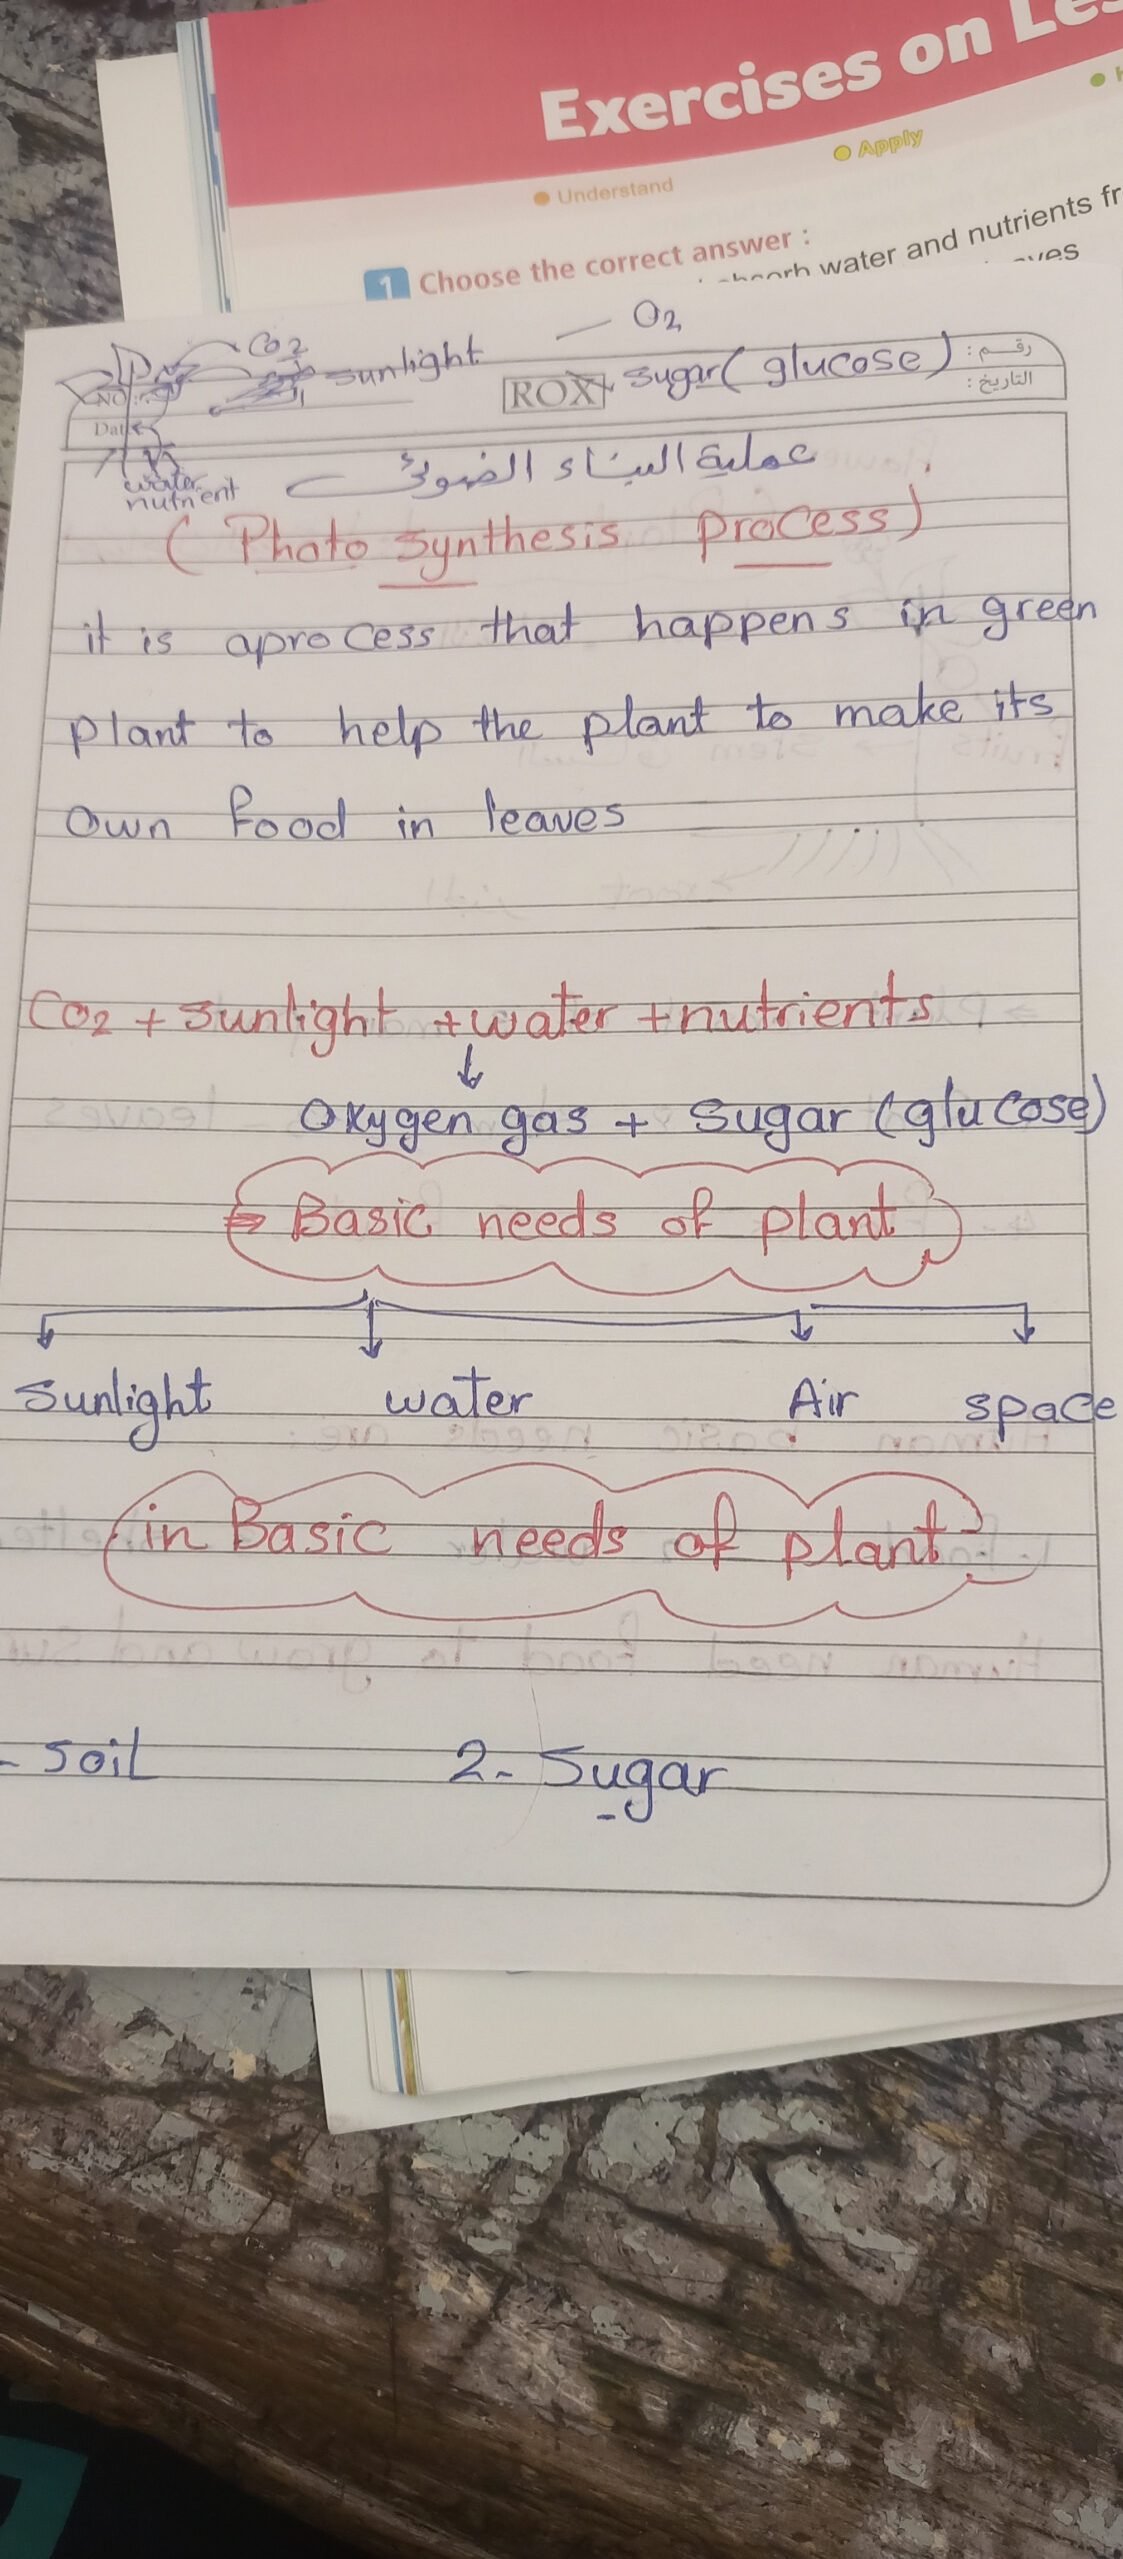 Exercises on Les
Apply
Understand
1 Choose the correct answer :
absorb water and nutrients fr
O2
CO2
sunlight
ROX + sugar( glucose)
رقم :
التاريخ :
NO
Dat
water
nutrient
عملية البناء الضوئى
( Photo synthesis process)
it is aprocess that happens in green
plant to help the plant to make its
own food in leaves
CO2 + sunlight + water + nutrients
Oxygen gas + Sugar (glucose)
Basic needs of plant
sunlight water Air space
in Basic needs of plant
- soil 2- Sugar